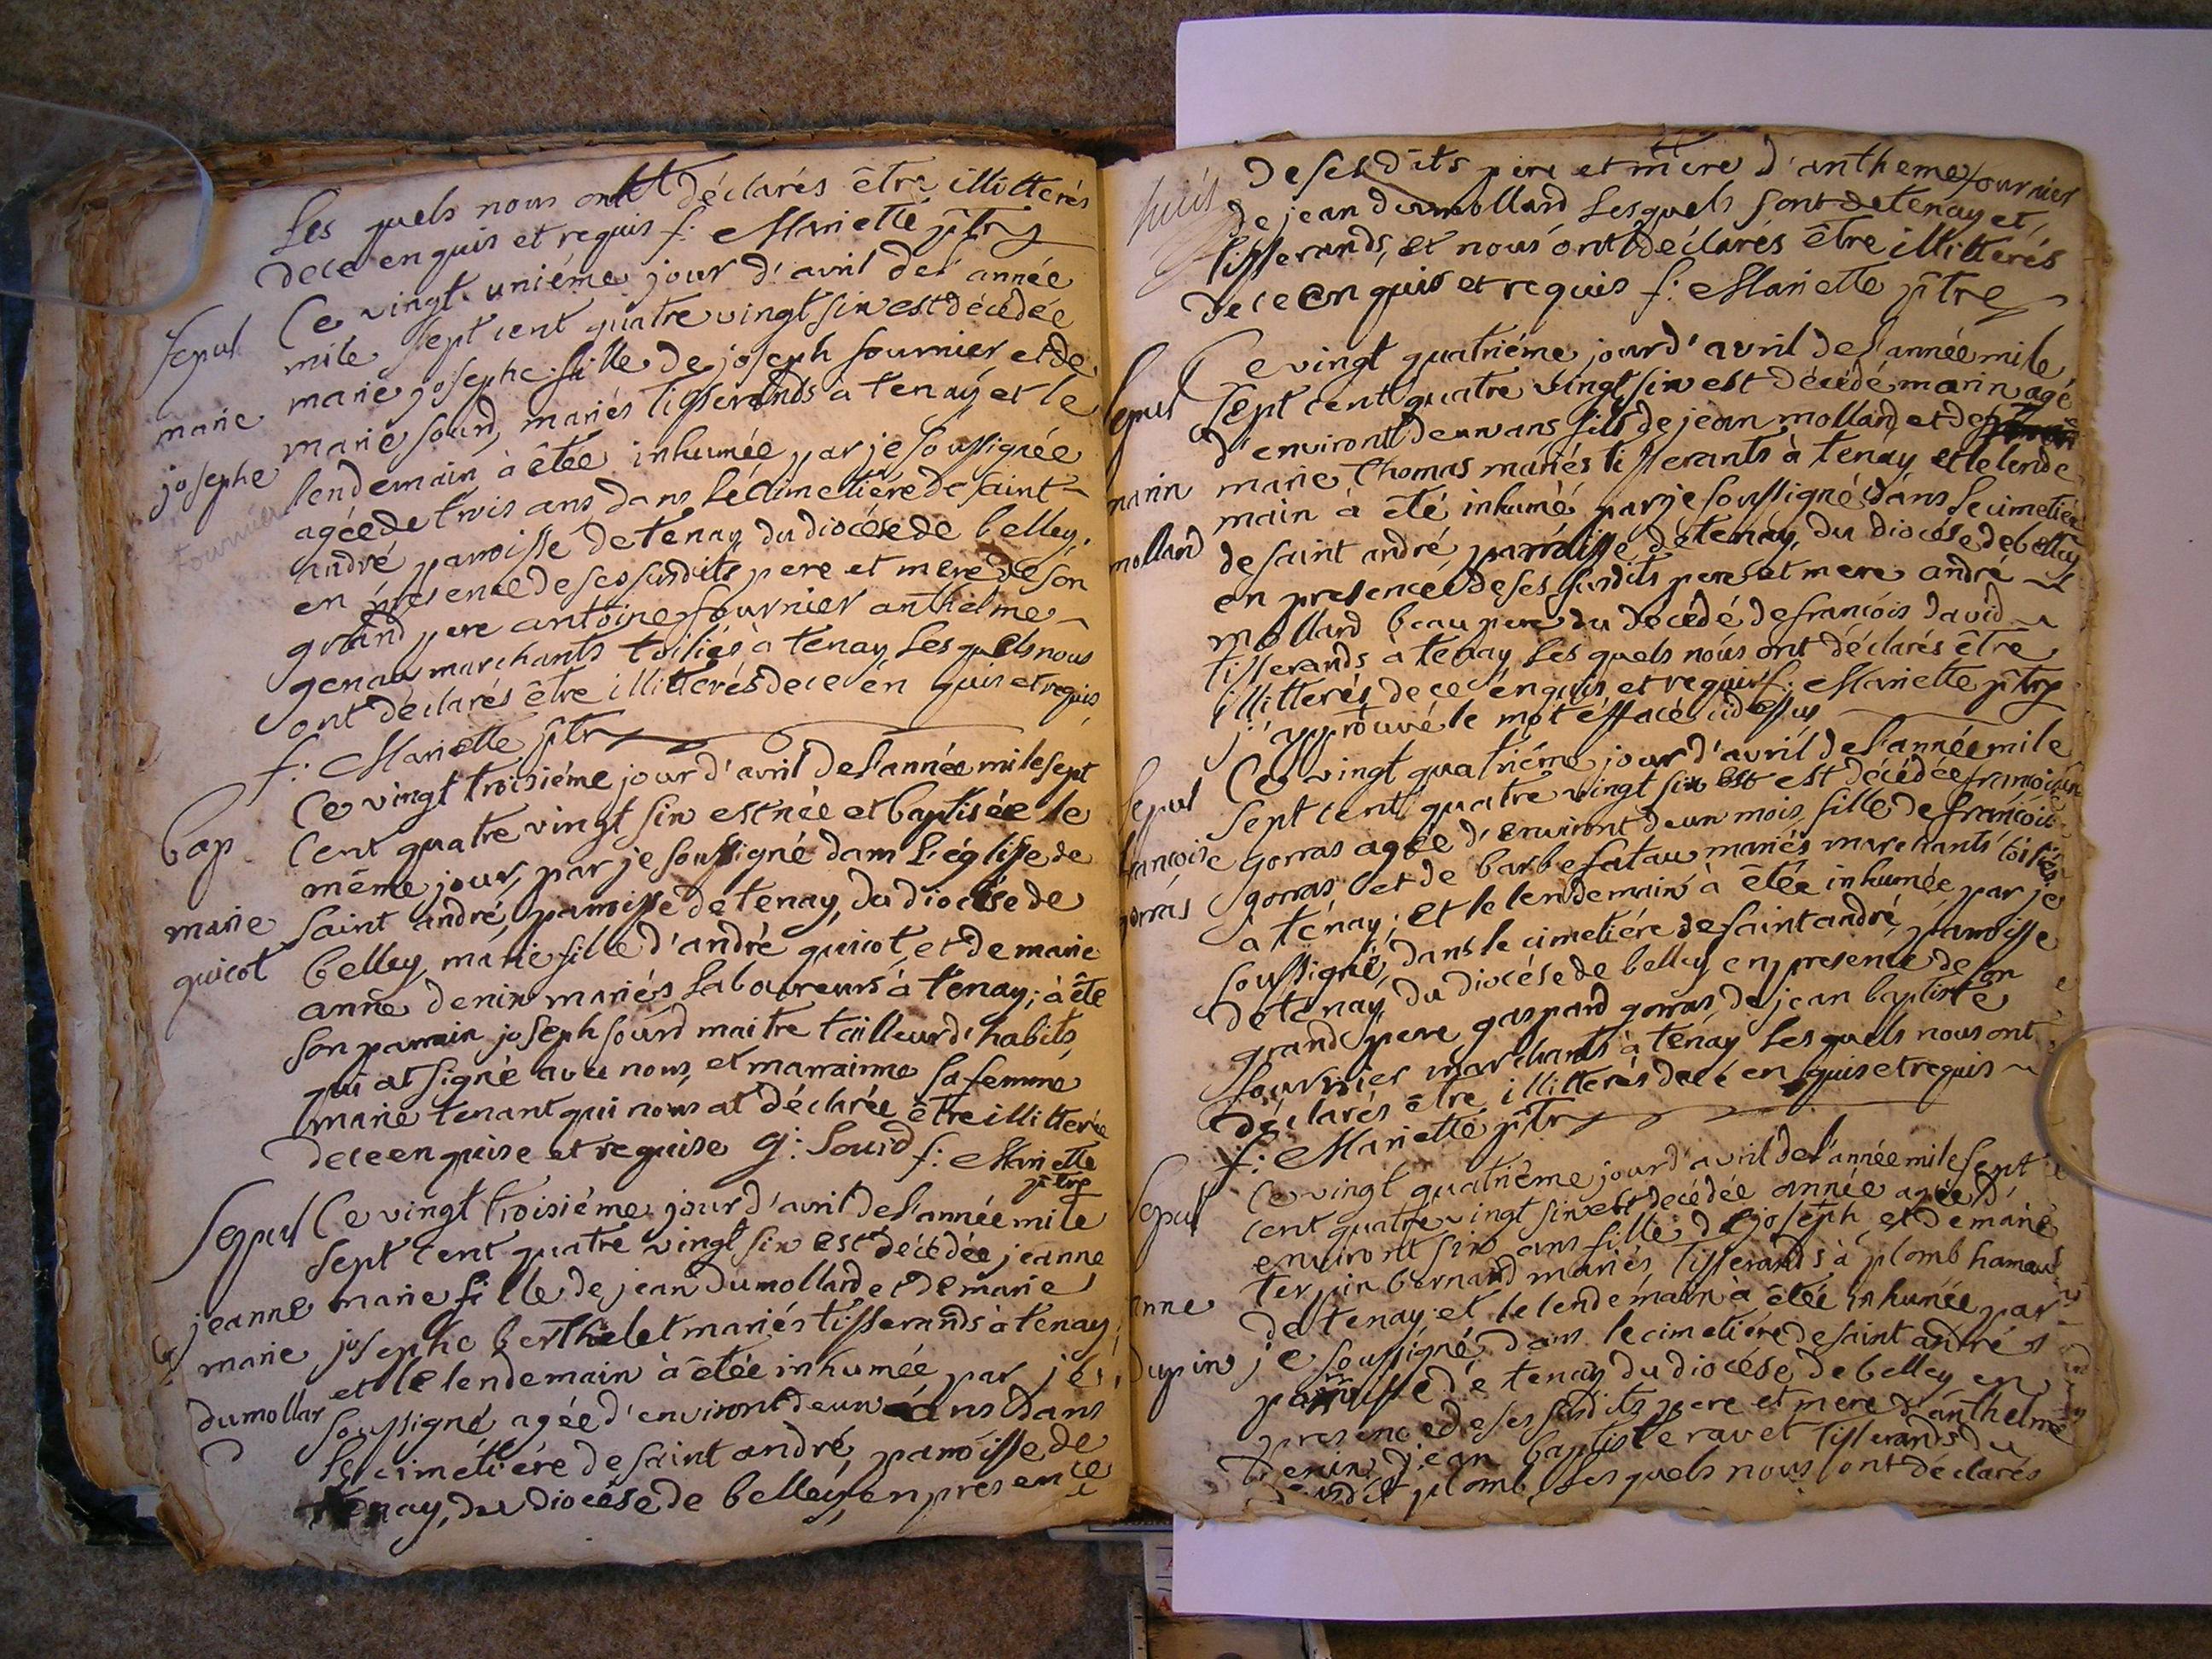 Les quels nous ont déclarés être illitterés
de ce en quis et requis f: Mariette ptre
Sepul
marie
josephe
fournier
Ce vingt uniéme jour d'avril de l'année
mile sept cent quatre vingt six est décédée
marie josephe fille de joseph fournier et de
marie sourd, mariés tisserands à tenay et le
lendemain à êtée inhumée par je soussignée
agée de trois ans dans le cimetiére de saint
andré parroisse de tenay du diocése de belley,
en presence de ses susdits pere et mere de son
grand pere antoine fournier anthelme
genau marchants toiliés à tenay Les quels nous
ont déclarés être illitterés de ce en quis et requis
f: Mariette ptre
Bap
marie
guicot
Ce vingt troisiéme jour d'avril de l'année mile sept
Cent quatre vingt six est née et baptisée le
même jour, par je soussigné dans L'églisse de
Saint andré, parroisse de tenay, du diocése de
belley, marie fille d'andré guicot, et de marie
anne denix mariés Laboureurs à tenay; à êté
son parrain joseph sourd maitre tailleur d'habits,
qui at signé avec nous, et marrainne sa femme
marie tenant qui nous at déclarée être illiterée
de ce en quise et requise j: Sourd f: Mariette
ptre
Seppul
jeanne
marie
dumollar
d
Ce vingt troisiéme jour d'avril de l'année mile
sept cent quatre vingt six est décédée jeanne
marie fille de jean dumollard et de marie
josephe berthelet mariés tisserands à tenay;
et le lendemain à êtée inhumée par je
soussigné agée d'environt deux ans dans
le cimétiére de saint andré, parroisse de
tenay, du diocése de belley, en presence
de ses dits pere et mere d'antheme fournier
de jean dumollard Lesquels sont de tenay et
tisserands, et nous ont déclarés être illitterés
de ce en quis et requis f: Mariette ptre
Sepul
marin
mollard
Ce vingt quatriéme jour d'avril de l'année mile
sept cent quatre vingt six est décédé marin agé
d'environt deux ans fils de jean mollard et de
marie thomas mariés tisserants à tenay et le lende
main à êté inhumé par je soussigné dans le cimetiére
de saint andré, parroisse de tenay, du diocése de belley
en presence de ses susdits pere et mere andré
mollard beaupere du décédé de francois david
tisserands à tenay Les quels nous ont déclarés être
illitterés de ce en quis et requis f: Mariette ptre
j'approuve le mot éffacé ci dessus
Sepul
francoise
gorras
Ce vingt quatriéme jour d'avril de l'année mile
sept cent quatre vingt six est est décédée francoise
gorras agée d'environt d'eun mois fille de francois
gorras et de barbe fatau mariés marchants toiliés
à tenay; et le lendemain à êtée inhumée par je
soussigné, dans le cimetiére de saint andré, parroisse
de tenay, du diocése de belley en presence de son
grand pere gaspard gorras, de jean baptiste
fournier marchants à tenay Les quels nous ont
déclarés être illitterés de ce en quis et requis
f: Mariette ptre
Sepul
anne
dupin
Ce vingt quatriéme jour d'avril de l'année mile sept
cent quatre vingt six est décédée année agée d'
environt six ans fille de joseph et de marie
terpin bernard mariés tisserands à plomb hameau
de tenay et le lendemain à êtée inhumée par
je soussigné dans le cimetiére de saint andré
parroisse de tenay du diocése de belley en
presence de ses susdits pere et mere d'anthelme
denix, jean baptiste ravet tisserands du
susdit plomb Les quels nous ont déclarés